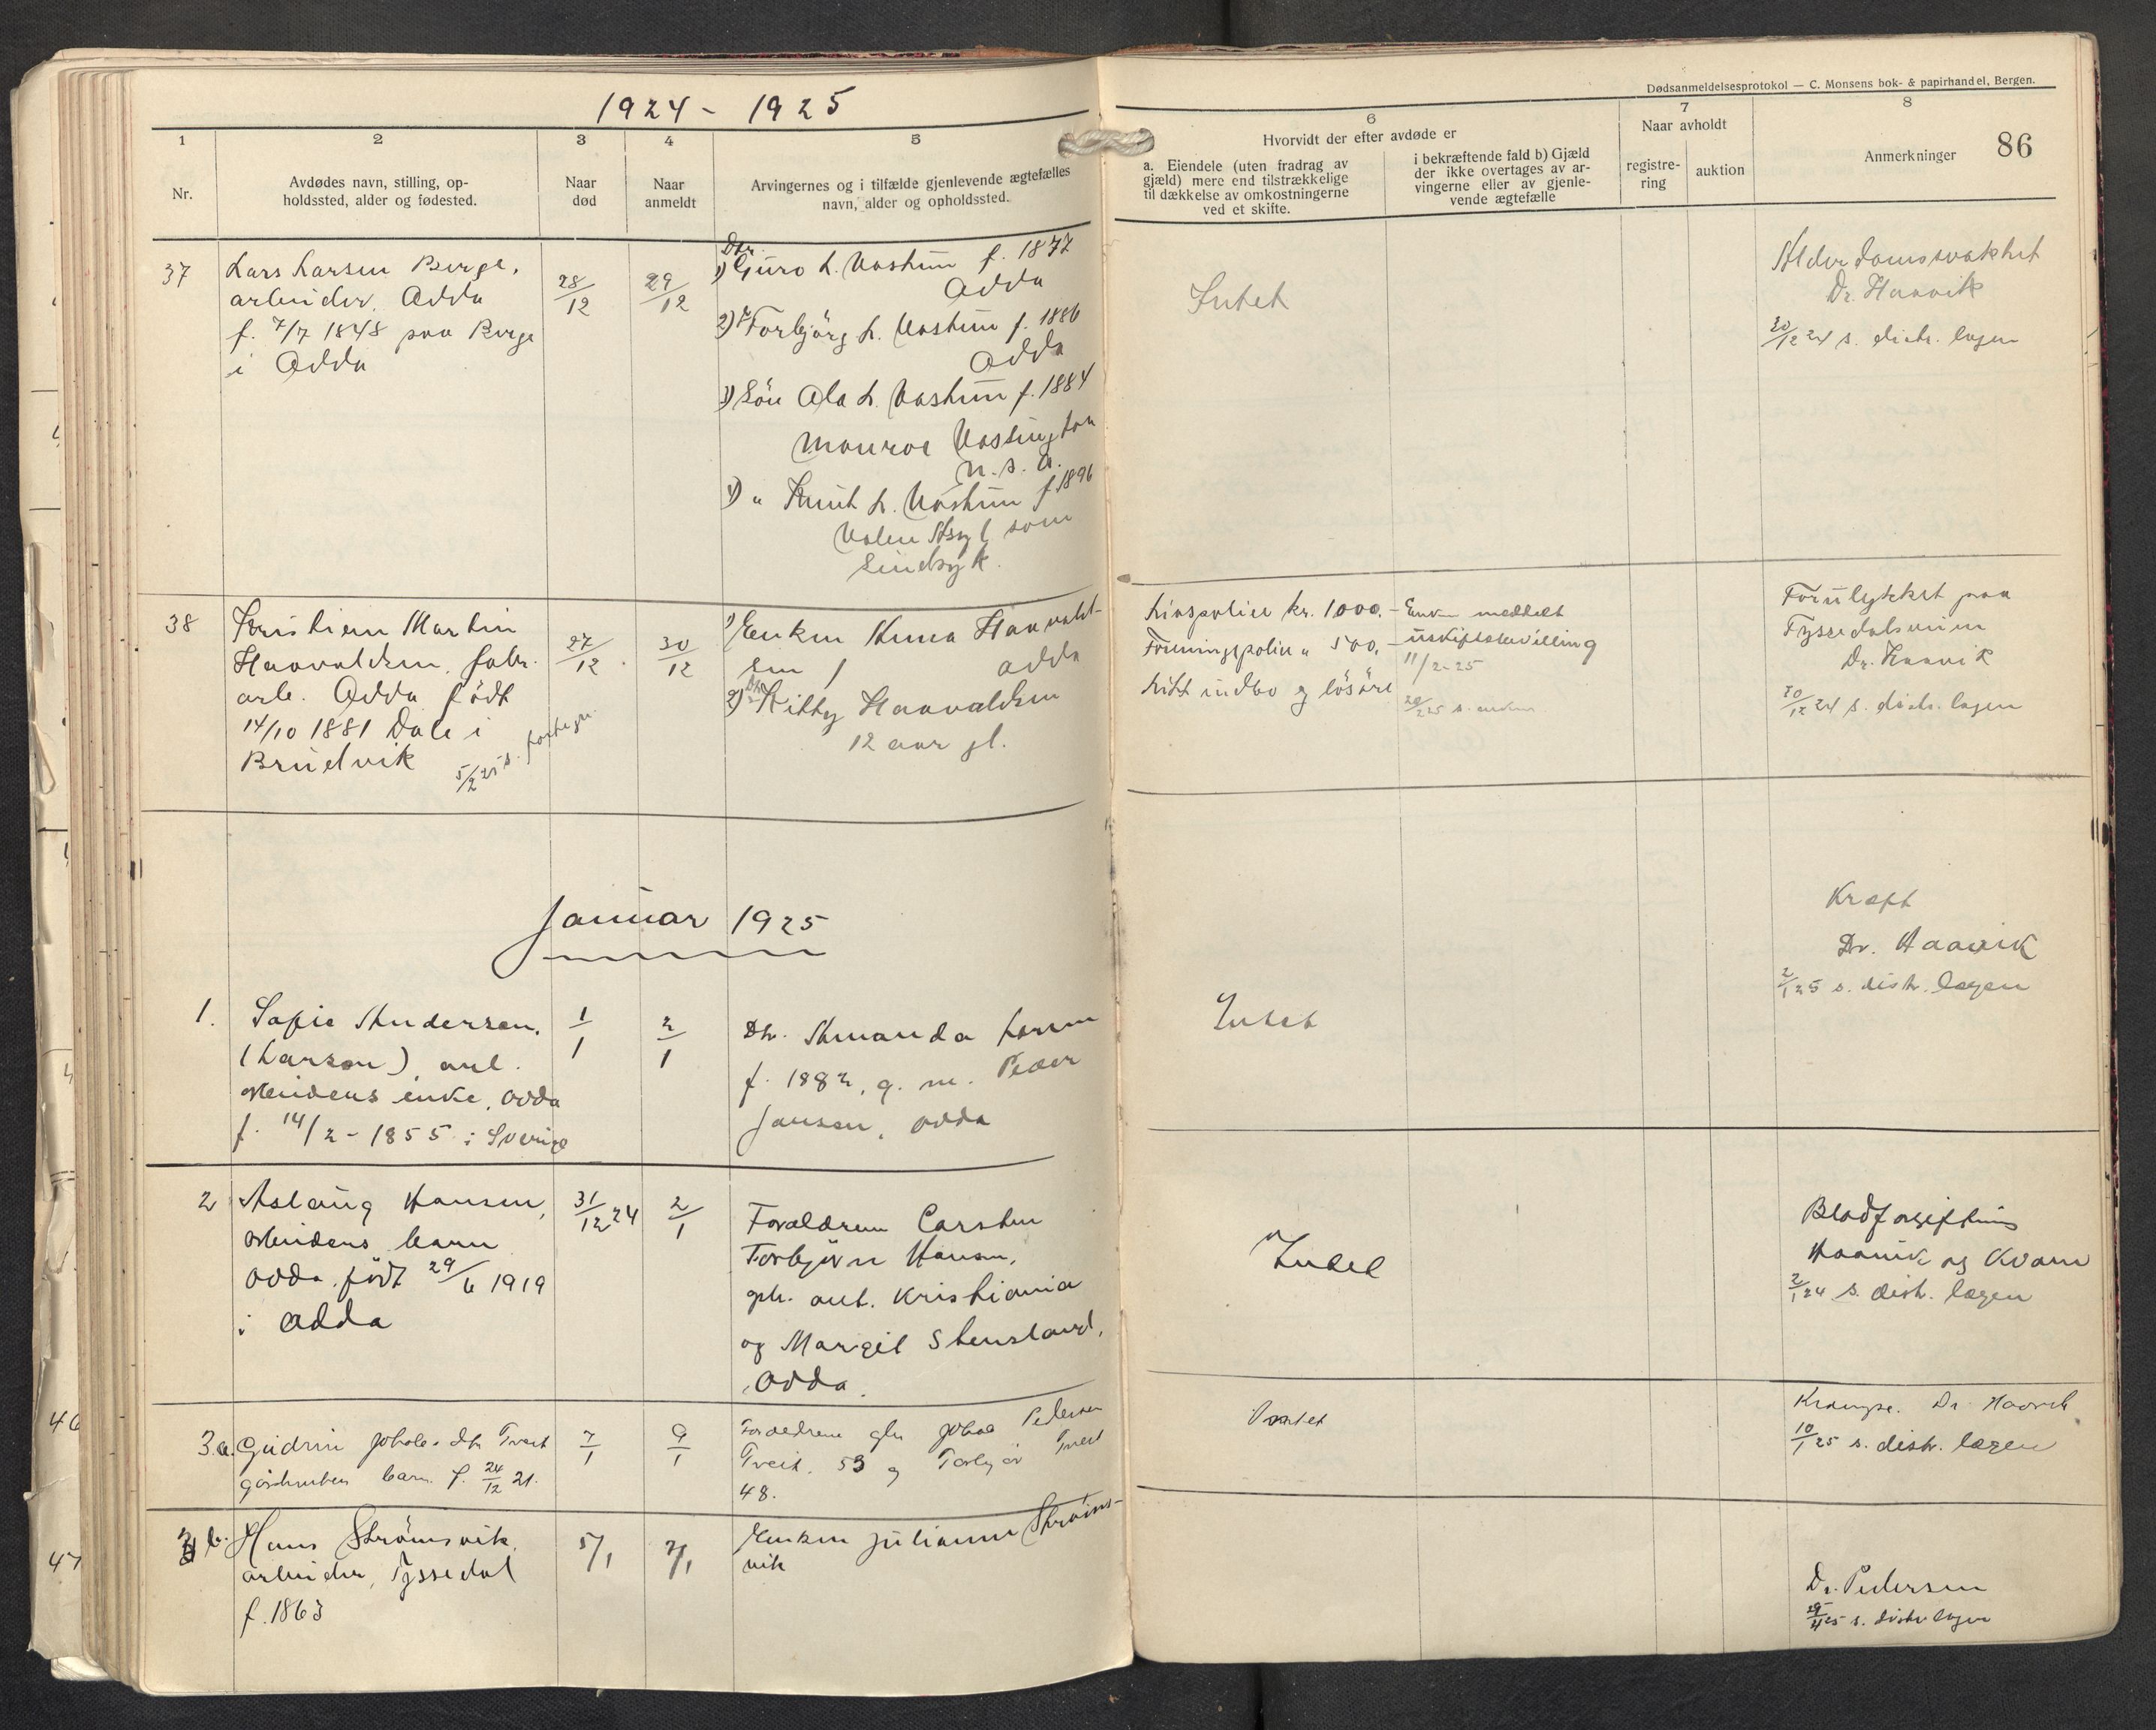 1924 - 1925
Dødsanmeldelsesprotokol — C. Monsens bok- & papirhandel, Bergen.
86
1
Nr.
2
Avdødes navn, stilling, op-
holdssted, alder og fødested.
3
Naar
død
4
Naar
anmeldt
5
Arvingernes og i tilfælde gjenlevende ægtefælles
navn, alder og opholdssted.
6
Hvorvidt der efter avdøde er
a. Eiendele (uten fradrag av
gjæld) mere end tilstrækkelige
til dækkelse av omkostningerne
ved et skifte.
i bekræftende fald b) Gjæld
der ikke overtages av ar-
vingerne eller av gjenle-
vende ægtefælle
7
Naar avholdt
registre-
ring
auktion
8
Anmerkninger
37
Lars Larsen Berge,
arbeider, Odda
f. 7/7 1848 paa Berge
i Odda
28/12
29/12
Dtr.
1) Guro L. Vastun f. 1877
Odda
2) " Torbjörg L. Vastun f. 1886
Odda
3) Sön Ola L. Vastun f. 1884
Monroe Vasington
U. S. A.
4) " Knut L. Vastun f. 1896
Valen Asyl som
Sindsyk.
Intet
Alderdomssvakhet
Dr. Haavik
30/12 24 s. distr. lægen
38
Kristian Martin
Haavaldsen, fabr.
arb. Odda född
14/10 1881 Dale i
Bruvik
5/2 25 s.
27/12.
30/12
1) Enken Anna Haavald-
sen
Odda
2) Dtr. Kitty Haavaldsen
12 aar gl.
Livspolice kr. 1000.-
Foreningspolice " 500.-
Litt indbo og lösöre
Enken meddelt
uskiftebevilling
11/2-25
s. enken
Forulykket paa
Tyssedalsveien
Dr. Haavik
30/12 24 s. distr. lægen
Januar 1925
1.
Sofie Andersen,
(Larsen) arb.
arbeiders enke, Odda
f. 14/2 - 1855 i Sverige
1/1
2/1
Dtr. Amanda Larsen
f. 1882, g. m. Peder
Jansen, Odda
Intet
Kræft
Dr. Haavik
2/1 25 s. distr. lægen
2
Aslaug Hansen,
arbeiders barn
Odda, född 29/6 1919
i Odda
31/12 24
2/1
Forældrene Carsten
Torbjörn Hansen,
Kristiania
og Margit Stensland,
Odda.
Intet
Blodforgiftning
Haavik og Kvam
2/1 24 s. distr. lægen
3.a.
Gudrun Johs dtr. Tveit
gårdbrukers barn f. 24/12 21.
7/1
9/1
Forældrene Pedersen
Tveit, 53 og Torbjör Tveit
48.
Intet
Krampe. Dr. Haavik
10/1 25 s. distr. lægen
3 b.
Hans Strömsvik,
arbeider, Tyssedal
f. 1863
5/1
7/1
Enken Julianne Ströms-
vik
Dr. Pedersen
29/4 25 s. distr. lægen
46
47